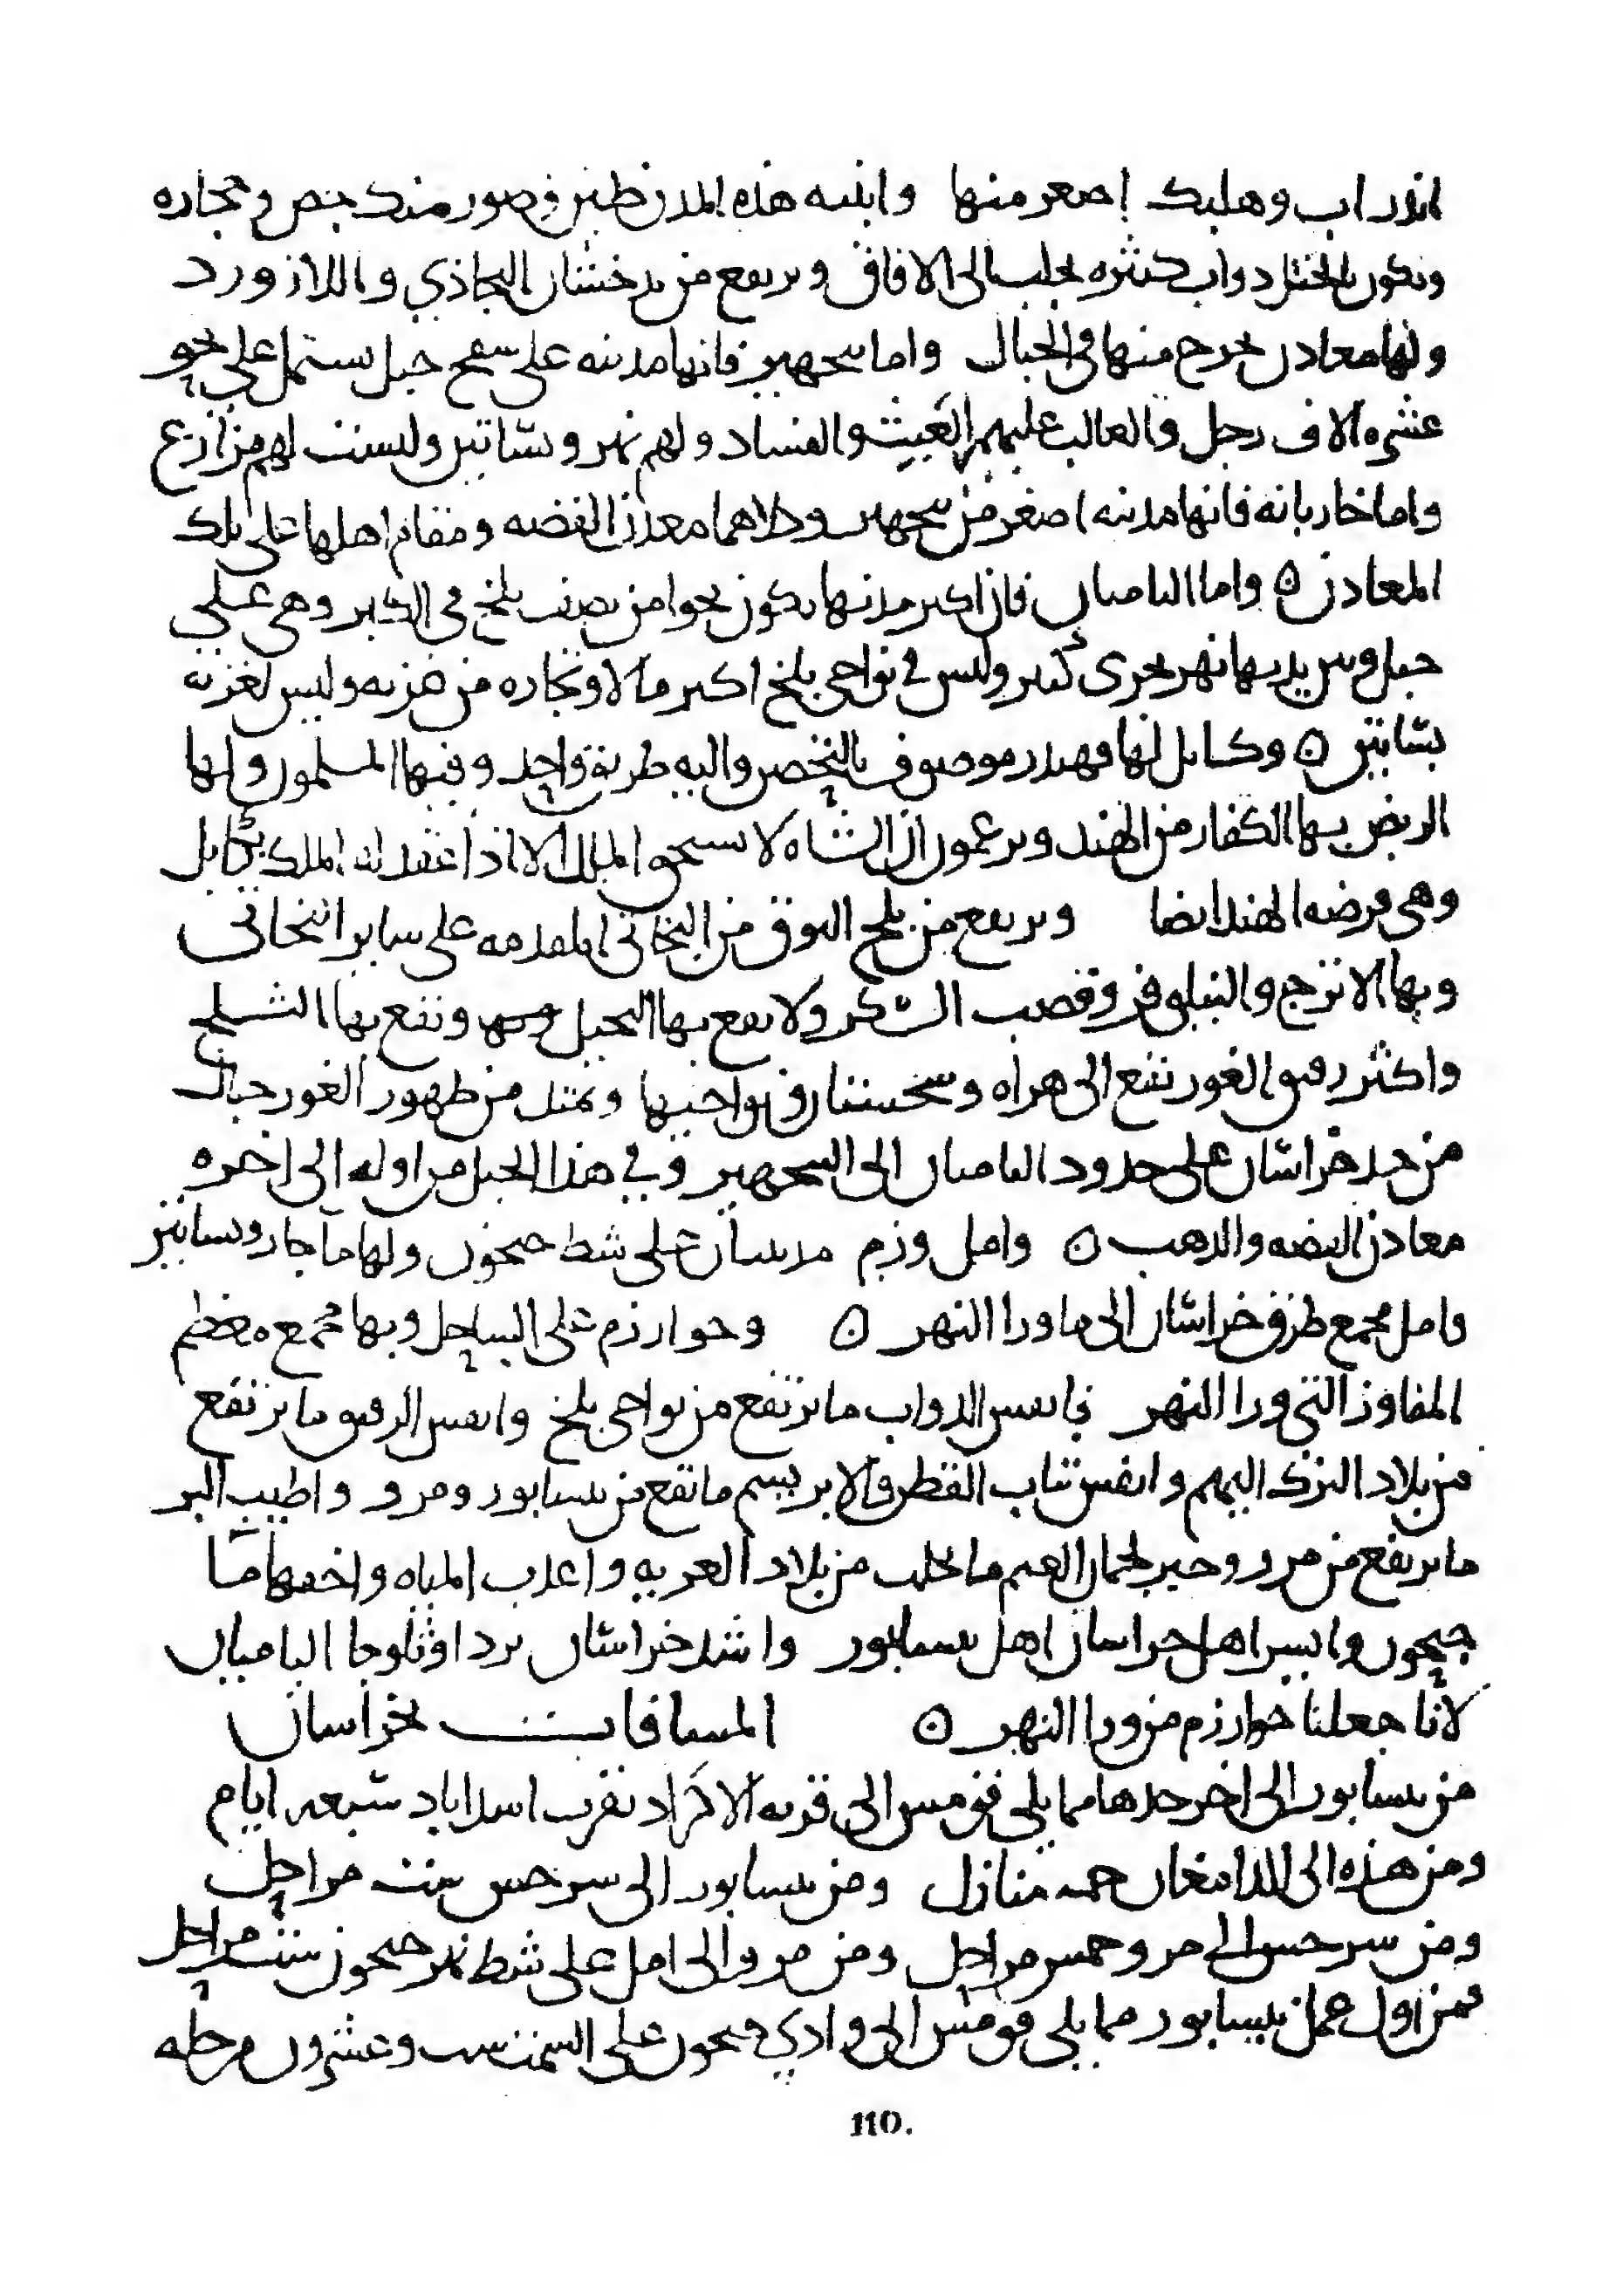 اندراب وهلبك اصغر منها وابنيه هذه المدن طين وصور مندك بجص وحجاره
ويكون بالختل دواب كثيره تجلب الى الافاق ويرتفع من بدخشان البجاذي واللازورد
ولها معادن تخرج منها في الجبال واما بنجهير فانها مدينه على سفح جبل يشتمل على نحو
عشره آلاف رجل والغالب عليهم العيث والفساد ولهم نهر وبساتين وليست لهم مزارع
واما خاربانه فانها مدينه اصغر من بنجهير وكلاهما معدن الفضه ومقام اهلها على تلك
المعادن ٥ واما الباميان فان اكبر مدنها يكون نحوا من نصف بلخ في الكبر وهي على
جبل وبين يديها نهر يجري كبير وليس في نواحي بلخ اكبر مالا وتجاره من غزنه وليس لغزنه
بساتين ٥ وكابل لها قهندز موصوف بالتحصن واليه طريق واحد وفيها المسلمون ولها
الربض بها الكفار من الهند ويزعمون ان الشاه لا يستحق الملك الا اذا عقد له الملك بكابل
وهي فرضه الهند ايضا ويرتفع من بلخ النوق من البخاتي المقدمه على ساير البخاتي
وبها الاترج والنيلوفر وقصب السكر ولا يقع بها النخيل وتقع بها الثلوج
واكثر رقيق الغور تقع الى هراه وسجستان ونواحيها ويمتد من ظهور الغور جبال
من حد خراسان على حدود الباميان الى البنجهير وفي هذا الجبل من اوله الى اخره
معادن الفضه والذهب ٥ وامل وزم مدينتان على شط جيحون ولها ماء جار وبساتين
وامل مجمع طرق خراسان الى ما ورا النهر ٥ وخوارزم على الساحل وبها مجمع معظم
المفاوز التي ورا النهر فانفس الدواب ما يرتفع من نواحي بلخ وانفس الرقيق ما يرتفع
من بلاد الترك اليهم وانفس ثياب القطن والابريسم ما تقع من نيسابور ومرو واطيب البر
ما يرتفع من مرو وخير لحمان الغنم ما يجلب من بلاد الغزيه واعذب المياه واخفها ماء
جيحون وايسر اهل خراسان اهل نيسابور واشد خراسان بردا وثلوجا الباميان
لانا جعلنا خوارزم من ورا النهر ٥ المسافات بخراسان
من نيسابور الى اخر حدها مما يلي قومس الى قريه الاكراد بقرب اسداباد سبعه ايام
ومن هذه الى الدامغان خمسه منازل ومن نيسابور الى سرخس ست مراحل
ومن سرخس الى مرو خمس مراحل ومن مرو الى امل على شط نهر جيحون ست مراحل
فمن اول عمل نيسابور مما يلي قومس الى وادي جيحون على السمت ست وعشرون مرحله
110.